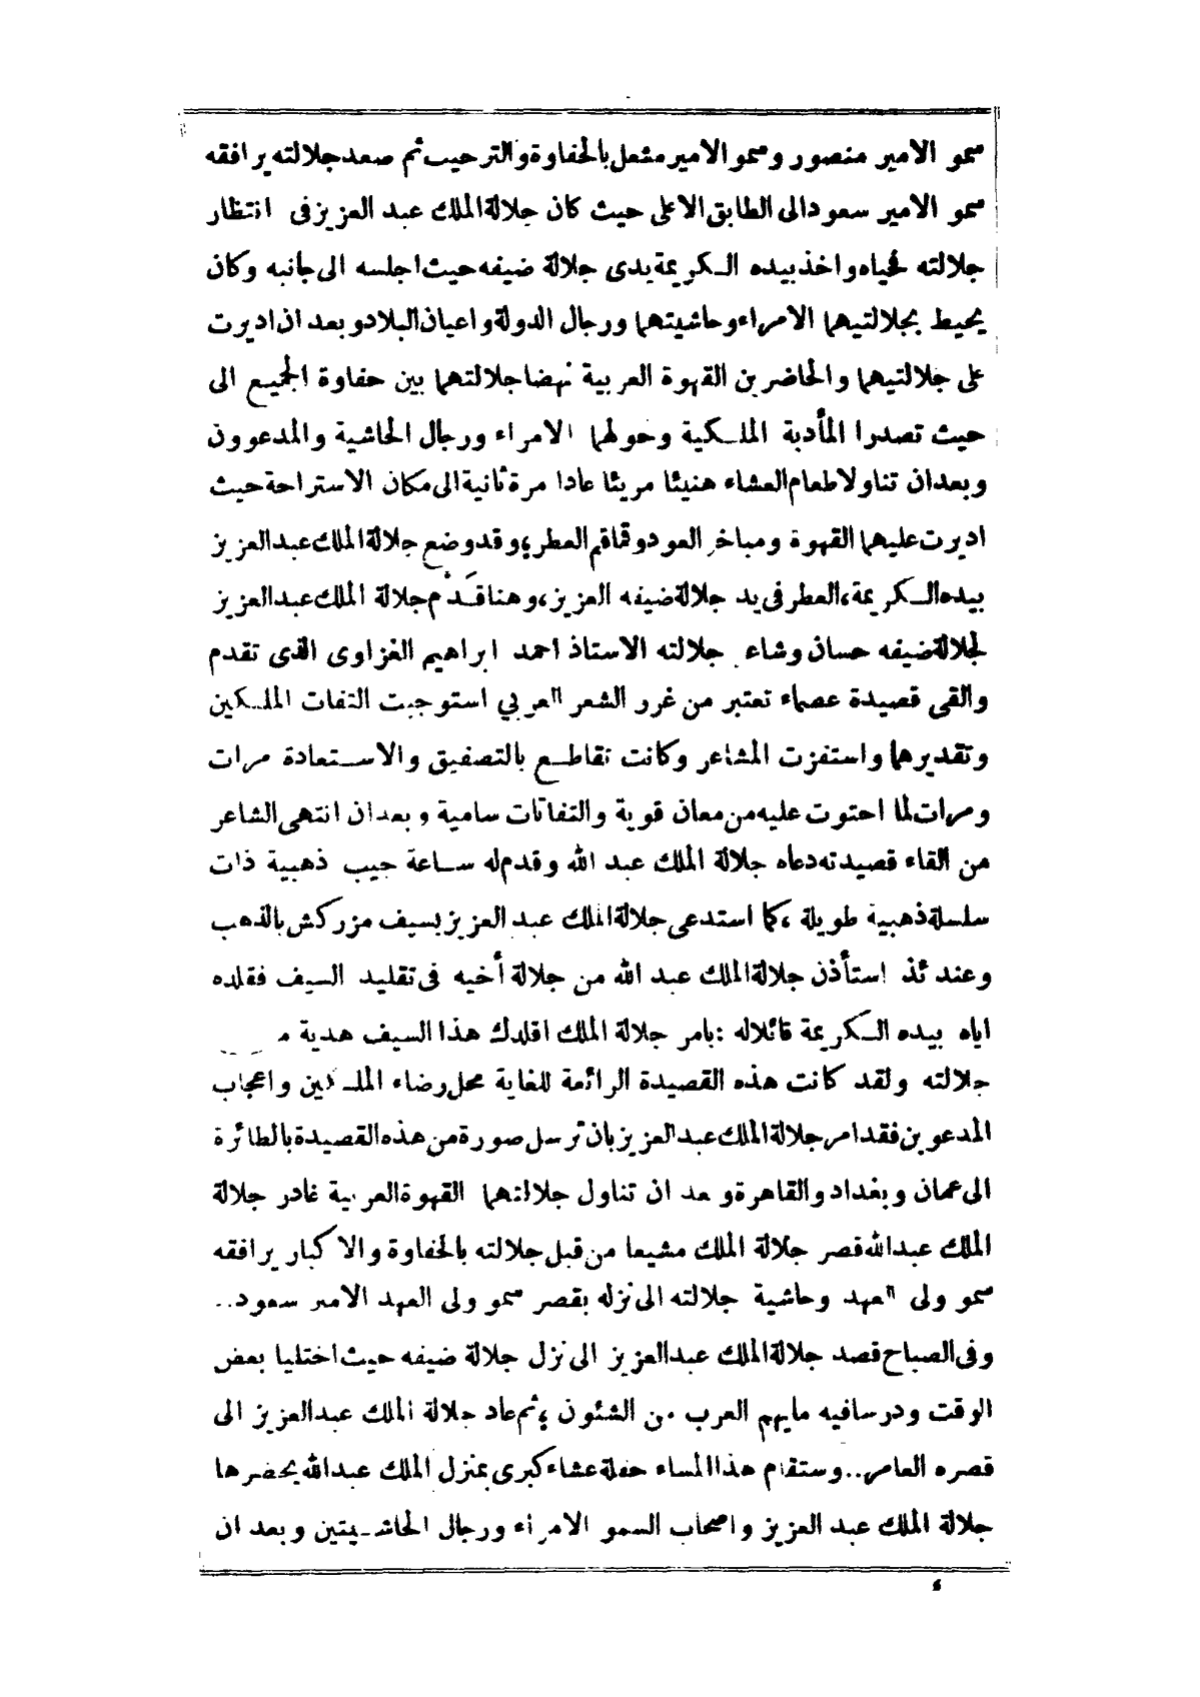 سمو الامير منصور وسمو الامير مشعل بالحفاوة والترحيب ثم صعد جلالته يرافقه
سمو الامير سعود الى الطابق الاعلى حيث كان جلالة الملك عبد العزيز فى انتظار
جلالته فحياه واخذ بيده الكريمة يدى جلالة ضيفه حيث اجلسه الى جانبه وكان
يحيط بجلالتيهما الامراء وحاشيتهما ورجال الدولة واعيان البلاد وبعد ان اديرت
على جلالتيهما والحاضرين القهوة العربية نهضا جلالتهما بين حفاوة الجميع الى
حيث تصدرا المأدبة الملكية وحولهما الامراء ورجال الحاشية والمدعوون
وبعد ان تناولا طعام العشاء هنيئا مريئا عادا مرة ثانية الى مكان الاستراحة حيث
اديرت عليهما القهوة ومباخر العود وقماقم العطر، وقد وضع جلالة الملك عبد العزيز
بيده الكريمة، العطر فى يد جلالة ضيفه العزيز، وهنا قدم جلالة الملك عبد العزيز
لجلالة ضيفه حسان وشاء جلالته الاستاذ احمد ابراهيم الغزاوى الذى تقدم
والقى قصيدة عصماء تعتبر من غرر الشعر العربي استوجبت التفات الملكين
وتقديرهما واستفزت المشاعر وكانت تقاطع بالتصفيق والاستعادة مرات
ومرات لما احتوت عليه من معان قوية والتفاتات سامية وبعد ان انتهى الشاعر
من القاء قصيدته دعاه جلالة الملك عبد الله وقدم له ساعة جيب ذهبية ذات
سلسلة ذهبية طويلة، كما استدعى جلالة الملك عبد العزيز بسيف مزركش بالذهب
وعند ئذ استأذن جلالة الملك عبد الله من جلالة أخيه فى تقليد السيف فقلده
اياه بيده الكريمة قائلا له : بامر جلالة الملك اقلدك هذا السيف هدية م
جلالته ولقد كانت هذه القصيدة الرائعة للغاية محل رضاء الملكين واعجاب
المدعوين فقد امر جلالة الملك عبد العزيز بان ترسل صورة من هذه القصيدة بالطائرة
الى عمان وبغداد والقاهرة وبعد ان تناول جلالتهما القهوة العربية غادر جلالة
الملك عبد الله قصر جلالة الملك مشيعا من قبل جلالته بالحفاوة والاكبار يرافقه
سمو ولى العهد وحاشية جلالته الى نزله بقصر سمو ولى العهد الامير سعود..
وفى الصباح قصد جلالة الملك عبد العزيز الى نزل جلالة ضيفه حيث اختليا بعض
الوقت ودرسا فيه ما يهم العرب من الشئون، ثم عاد جلالة الملك عبد العزيز الى
قصره العامر.. وستقام هذا المساء حفلة عشاء كبرى بمنزل الملك عبد الله يحضرها
جلالة الملك عبد العزيز واصحاب السمو الامراء ورجال الحاشيتين وبعد ان